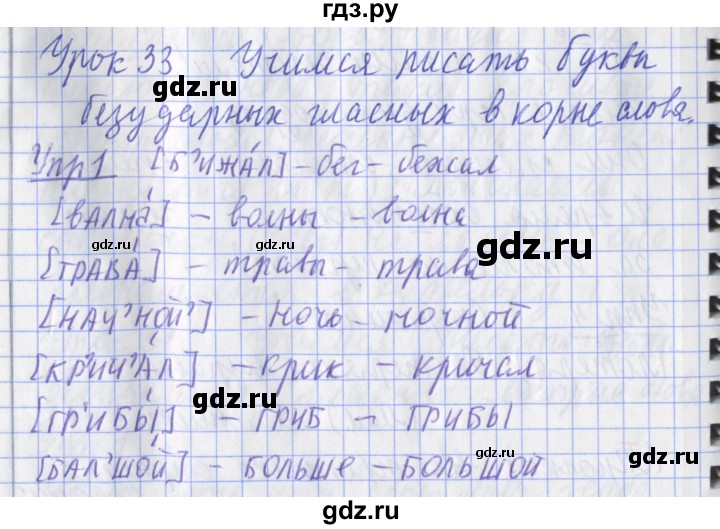 гдз.ру
Урок 33 Учимся писать буквы
безударных гласных в корне слова.
Упр1 [Б'ИЖА́Л] - бег - бежал
[ВАЛНА́] - волны - волна
[ТРАВА́] - травы - трава
[НАЧ'НОЙ'] - ночь - ночной
[КР'ИЧ'А́Л] - крик - кричал
[ГР'ИБЫ́] - ГРИБ - ГРИБЫ
[БАЛ'ШО́Й] - БОЛЬШЕ - БОЛЬШОЙ
gdz.ru
gdz.ru
gdz.ru
gdz.ru
gdz.ru
gdz.ru